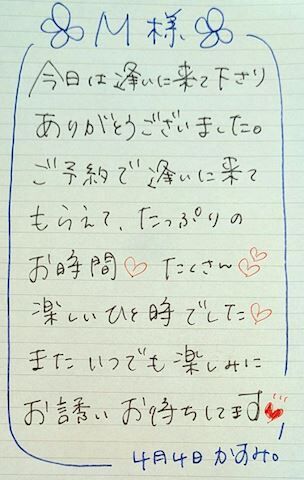 M様
今日は逢いに来て下さり
ありがとうございました。
ご予約で逢いに来て
もらえて、たっぷりの
お時間♡たくさん♡♡
楽しいひと時でした♡
またいつでも楽しみに
お誘いお待ちしてます♥
4月4日 かすみ。